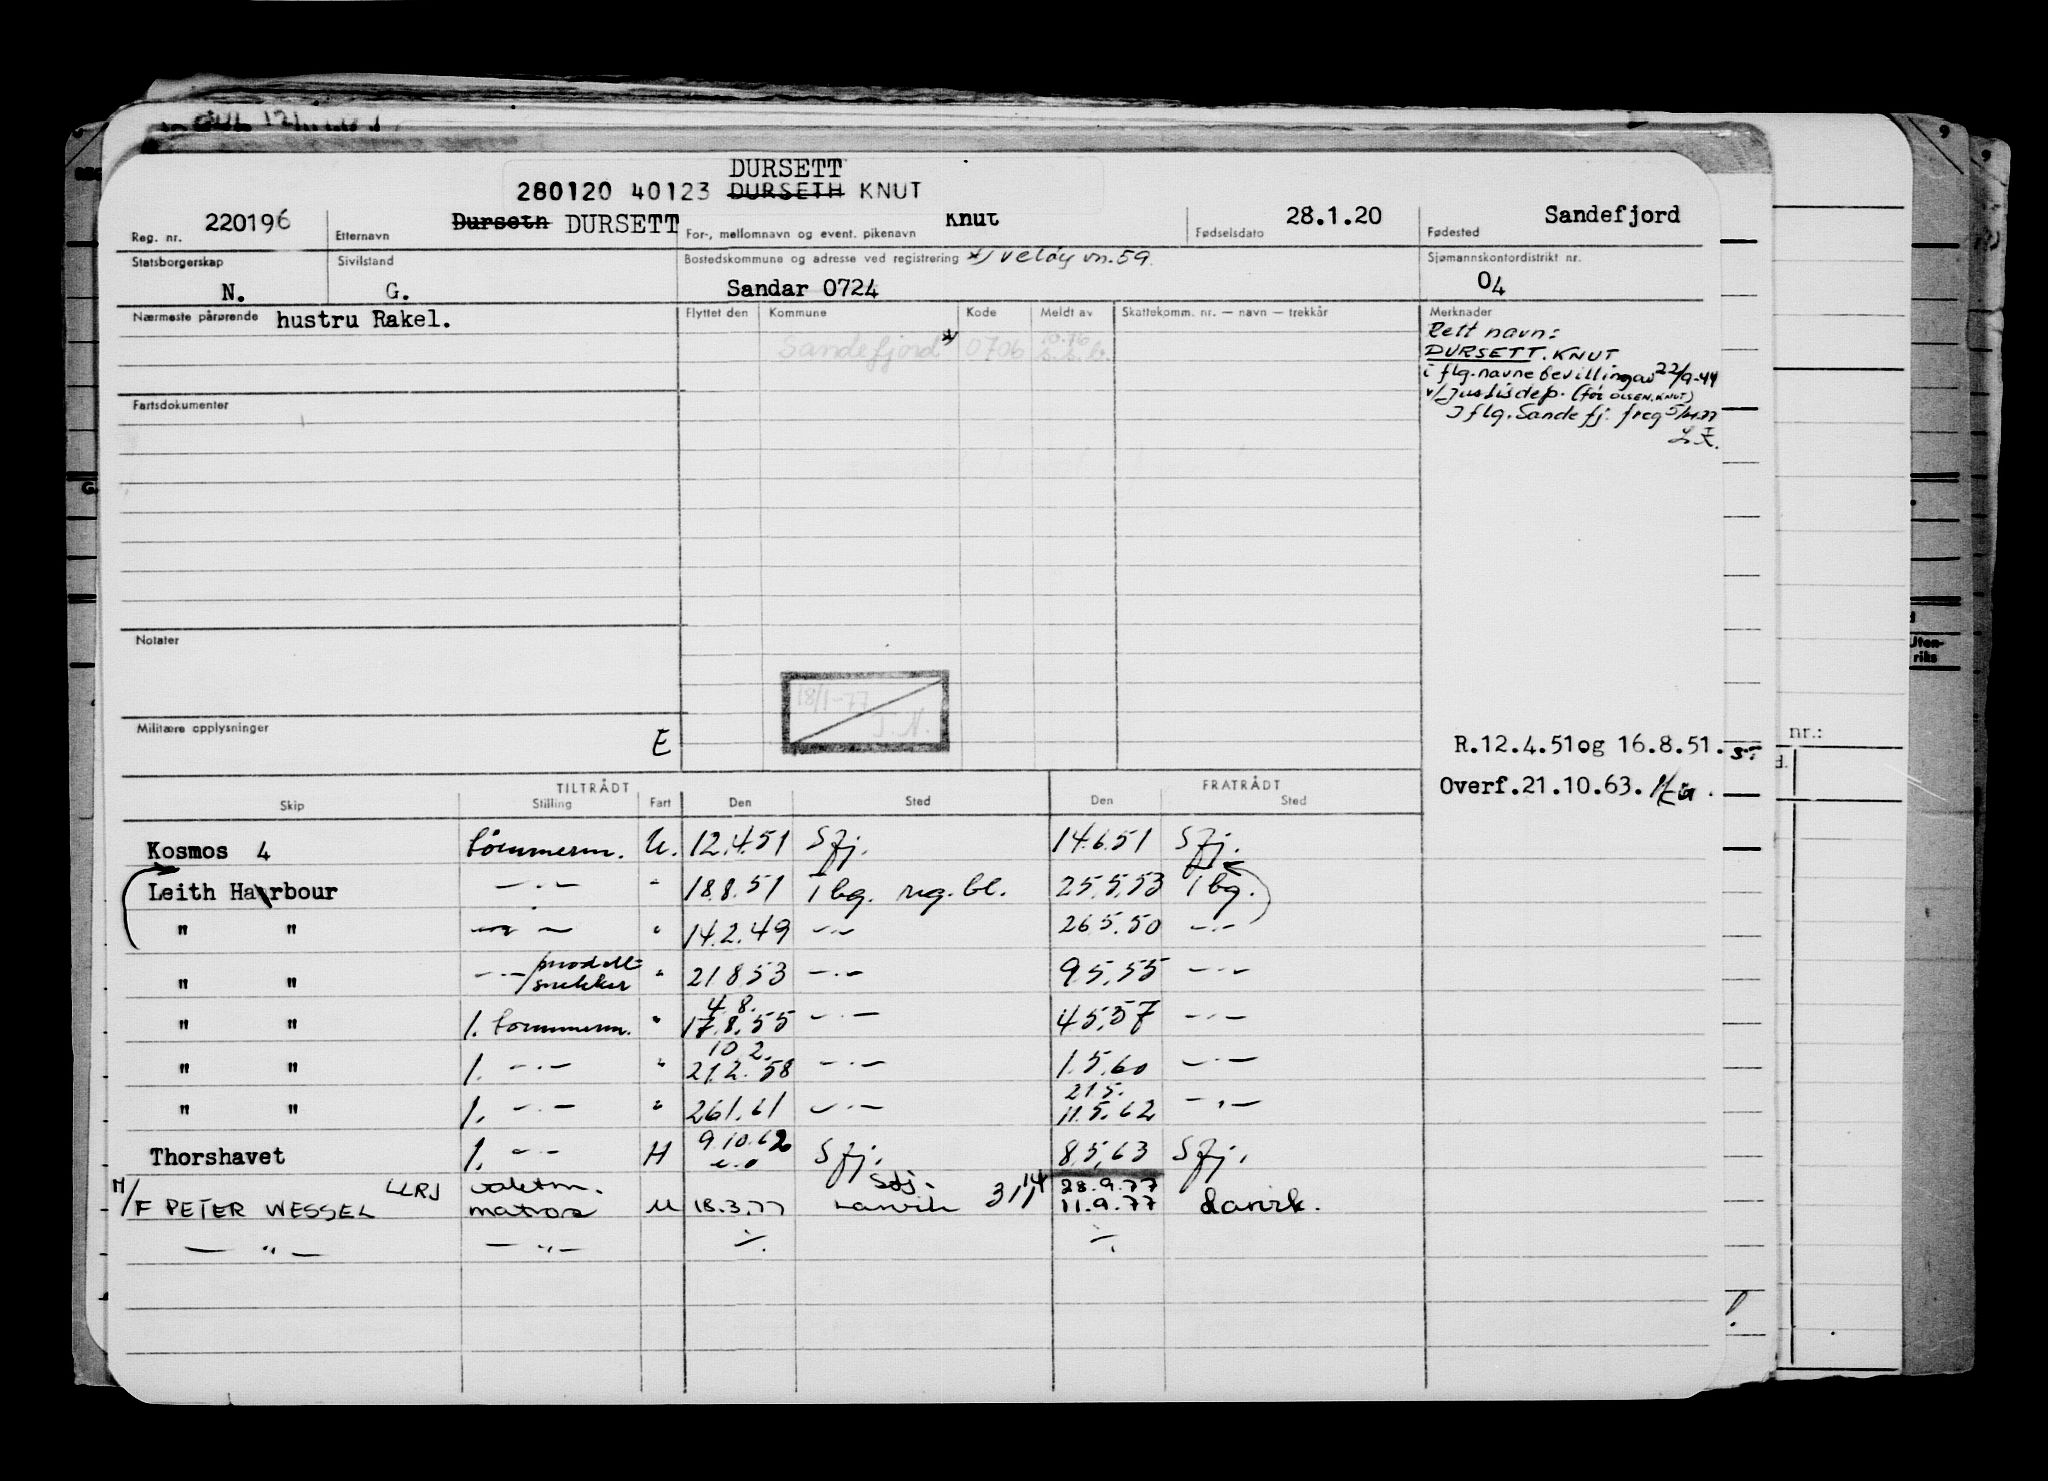 DURSETT
280120 40123 DURSETH KNUT
Reg. nr. 220196 Etternavn Durseth DURSETT For-, mellomnavn og event. pikenavn Knut Fødselsdato 28.1.20 Fødested Sandefjord
Statsborgerskap Sivilstand Bostedskommune og adresse ved registrering Sjømannskontordistrikt nr.
N. G. Sandar 0724 04
Nærmeste pårørende hustru Rakel. Flyttet den Kommune Kode Meldt av Skattekomm. nr. — navn — trekkår Merknader
Sandefjord 0706
Rett navn:
DURSETT. KNUT
i flg. navnebevilling av 22/9-44
v/Justisdep. (før OLSEN, KNUT)
I flg. Sandefj. freg
Fartsdokumenter
Notater
18/1-77
Militære opplysninger E
R.12.4.51og 16.8.51.
Overf.21.10.63.
TILTRÅDT FRATRÅDT
Skip Stilling Fart Den Sted Den Sted
Kosmos 4 tömmerm. U. 12.4.51 Sfj. 14.6.51 Sfj.
Leith Harbour —·— " 18.8.51 Tbg. rg. bl. 25.5.53 Tbg.
" " —·— " 14.2.49 —·— 26.5.50 —·—
" " —·—/modell= snekker " 21.8.53 —·— 9.5.55 —·—
4.8.
" " 1. tömmerm. " 17.8.55 —·— 4.5.57 —·—
10.2.
" " 1. —·— " 21.2.58 —·— 1.5.60 —·—
21.5.
" " 1. —·— " 26.1.61 —·— 11.5.62 —·—
Thorshavet 1. —·— H 9.10.62 Sfj. 8.5.63 Sfj.
LLRJ vaktm. 28.9.77
M/F PETER WESSEL matros U 18.3.77 Larvik 11.9.77 Larvik.
— " — — " — ÷ ÷
nr.:
Uten-
riks